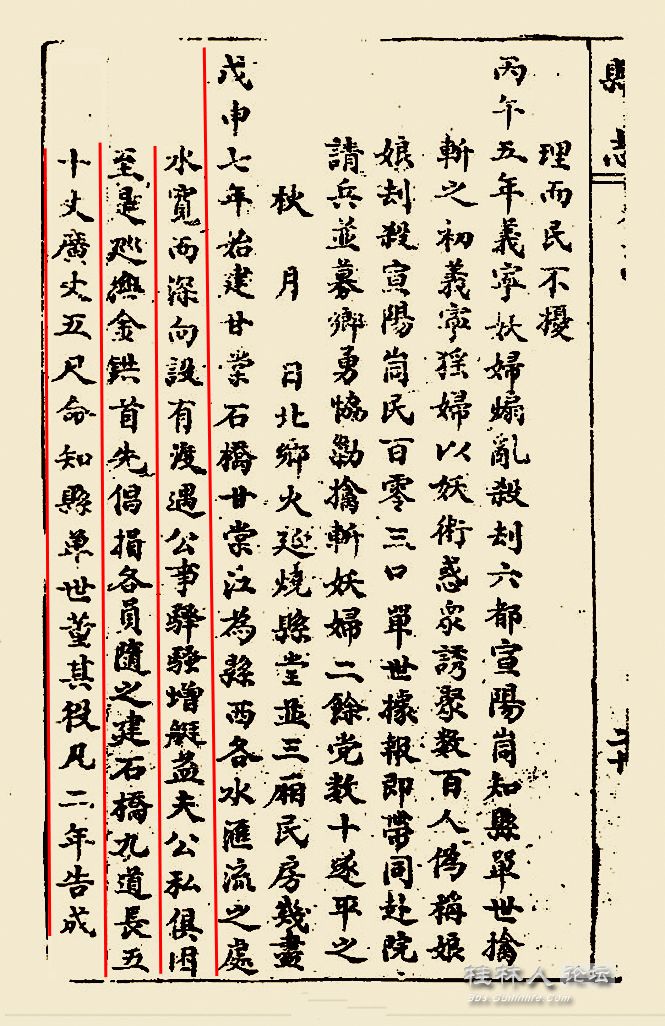 縣志
二十
理而民不擾
丙午五年義寧妖婦煽亂殺刦六都宣陽峝知縣單世擒
斬之初義寧猺婦以妖術惑衆誘聚数百人僞稱娘
娘刦殺宣陽峝民百零三口單世據報即帶同赴院
請兵並募鄉勇恊勦擒斬妖婦二餘党数十遂平之
秋 月 日北鄉火延燒縣堂並三廂民房幾盡
戊申七年始建甘棠石橋甘棠江為縣西各水滙流之處
水寬而深向設有渡遇公事驛騷增艇益夫公私俱困
至是廵撫金鉷首先倡捐各員隨之建石橋九道長五
十丈廣丈五尺命知縣單世董其役凡二年告成
桂林人论坛
bbs.Guilinlife.com